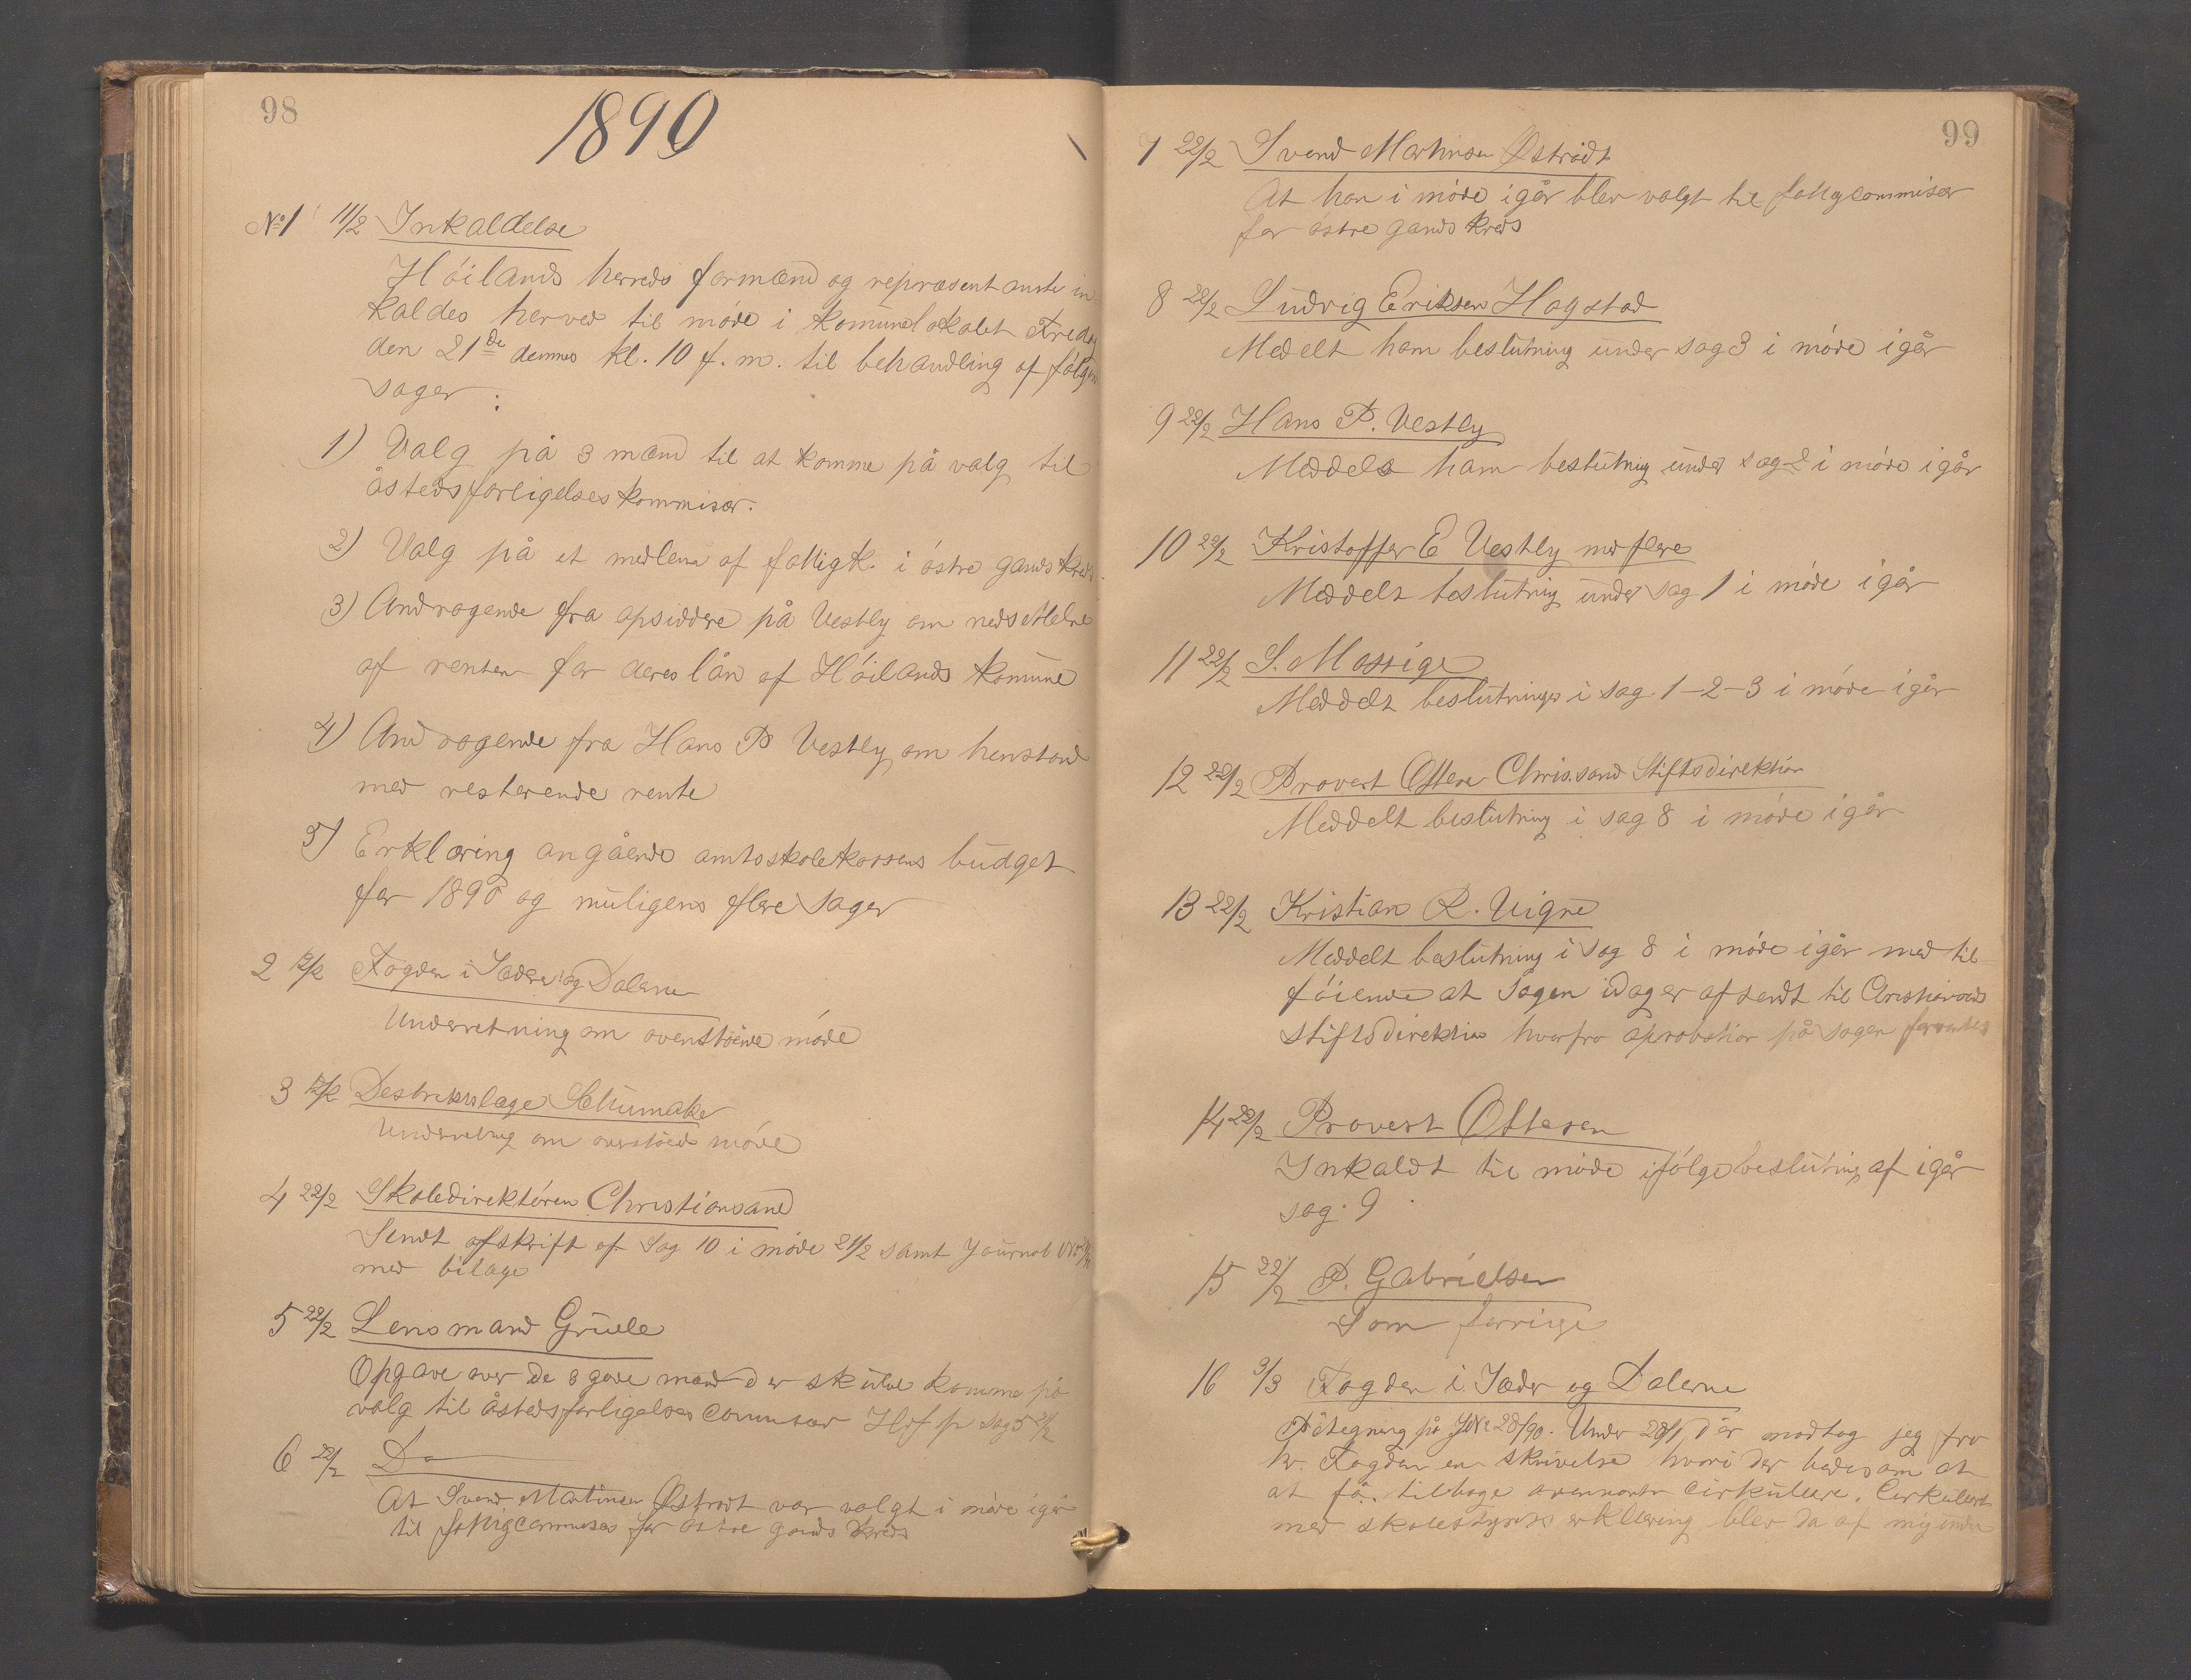 98
1890
No 1 11/2 Inkaldelse
Höilands herreds formænd og repræsentante in-
kaldes herved til möde i komunelokalet Freda
den 21de dennes kl. 10 f. m. til behandling af fölgen
sager :
1) Valg på 3 mænd til at komme på valg til
åstedsforligelseskommisær.
2) Valg på et medlem af fattigk. i östre gands kreds
3) Andragende fra opsiddere på Vestly om nedsettelse
af renten for deres lån af Höilands komune
4) Andragende fra Hans P Vestly om henstand
med resterende rente
5) Erklæring angående amtsskolekassens budget
for 1890 og muligens flere sager
2 12/2 Fogden i Jæder og Dalerne
Underretning om ovenståënde möde
3 12/2 Destriktslæge Schumaker
Underretning om möde
4 22/2 Skoledirektören Christiansand
Sendt afskrift af Sag 10 i möde 21/2 samt Journal
med bilage
5 22/2 Lensmand Grude
Opgave over de 3 gode mænd der skulde komme på
valg til åstedsforligelses commisær Hrf pr Sag 5 21/2
6 22/2 Do
At Svend Martinsen Östradt var valgt i möde igår
til fattigcommisær for östre gands kreds
99
7 22/2 Svend Martinsen Østrådt
At han i möde igår blev valgt til fattigcommisær
for östre gands kreds
8 22/2 Ludvig Eriksen Hogstad
Medelt ham beslutning under sag 3 i möde igår
9 22/2 Hans P. Vestly
Meddelt ham beslutning under sag 2 i möde igår
10 22/2 Kristoffer E Vestly med flere
Meddelt beslutning under sag 1 i möde igår
11 22/2 S. Mossige
Meddelt beslutninger i sag 1-2-3 i möde igår
12 22/2 Provest Ottesen Chris.sand Stiftsdirektion
Meddelt beslutning i sag 8 i möde igår
13 22/2 Kristian R. Vigne
Meddelt beslutning i sag 8 i möde igår med til-
föiende at sagen idag er afsendt til Christiansands
Stiftsdirektion hvorfra aprobation på sagen forventes
14 22/2 Provest Ottesen
Inkaldt til möde ifölge beslutning af igår
sag 9
15 22/2 P. Gabrielsen
Som forrige
16 3/3 Fogden i Jæder og Dalerne
Påtegning på JNr 28/90. Under 28/1 d år modtog jeg fra
hr. Fogden en skrivelse hvori der bedes om at
at få tilbage cirkulære. Cirkulæret
med skolestyrets erklæring blev da af mig under